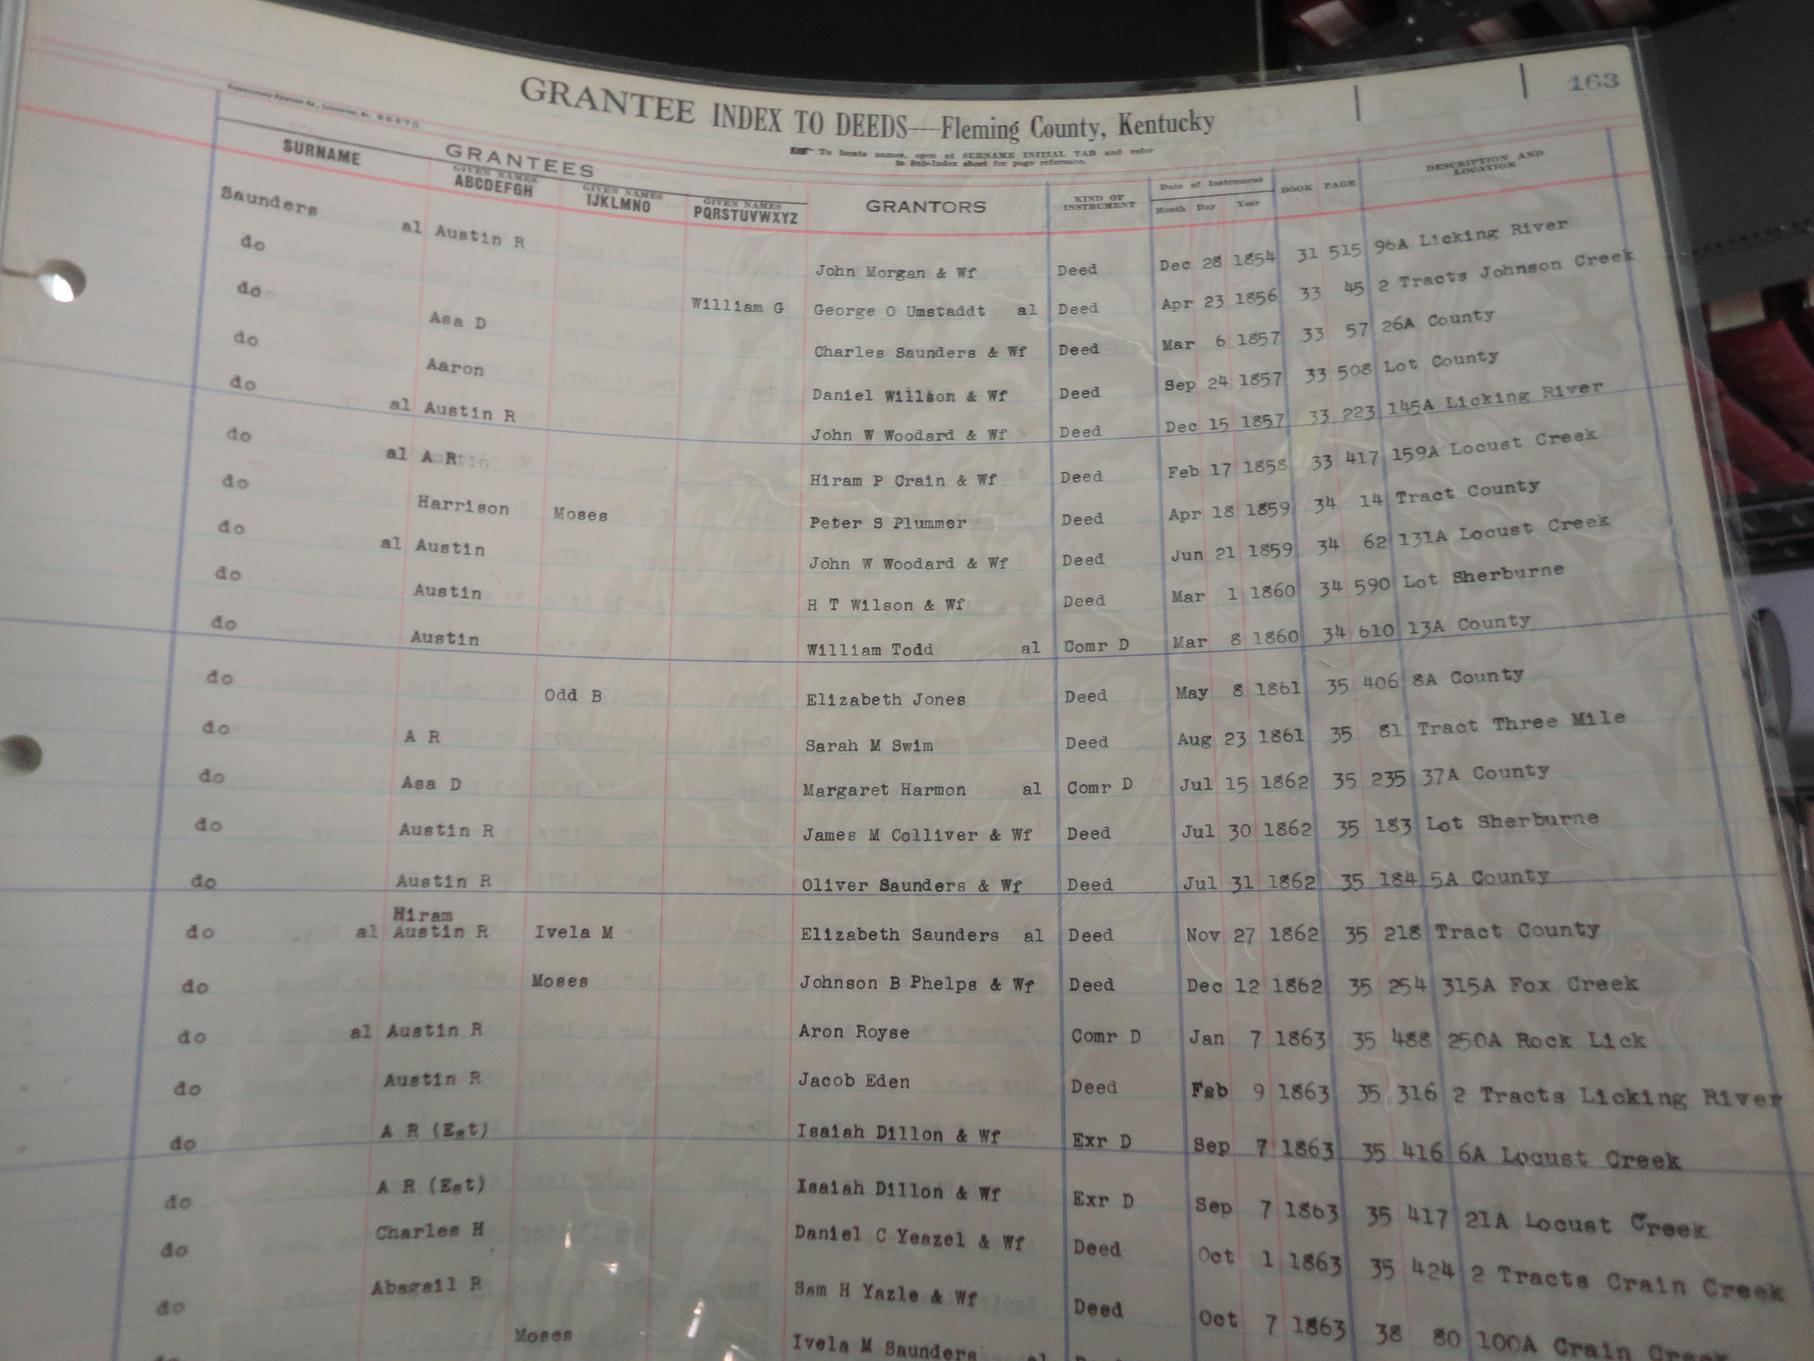 163
GRANTEE INDEX TO DEEDS—Fleming County, Kentucky
To locate names, open at SURNAME INITIAL TAB and refer
to Sub-Index sheet for page reference.
GRANTEES
SURNAME GIVEN NAMES ABCDEFGH GIVEN NAMES IJKLMNO GIVEN NAMES PQRSTUVWXYZ GRANTORS KIND OF INSTRUMENT Date of Instrument Month Day Year BOOK PAGE DESCRIPTION AND LOCATION
Saunders al Austin R John Morgan & Wf Deed Dec 28 1854 31 515 96A Licking River
do William G George O Umstaddt al Deed Apr 23 1856 33 45 2 Tracts Johnson Creek
do Asa D Charles Saunders & Wf Deed Mar 6 1857 33 57 26A County
do Aaron Daniel Willson & Wf Deed Sep 24 1857 33 508 Lot County
do al Austin R John W Woodard & Wf Deed Dec 15 1857 33 223 145A Licking River
do al A R Hiram P Crain & Wf Deed Feb 17 1858 33 417 159A Locust Creek
do Harrison Moses Peter S Plummer Deed Apr 18 1859 34 14 Tract County
do al Austin John W Woodard & Wf Deed Jun 21 1859 34 62 131A Locust Creek
do Austin H T Wilson & Wf Deed Mar 1 1860 34 590 Lot Sherburne
do Austin William Todd al Comr D Mar 8 1860 34 610 13A County
do Odd B Elizabeth Jones Deed May 8 1861 35 406 8A County
do A R Sarah M Swim Deed Aug 23 1861 35 81 Tract Three Mile
do Asa D Margaret Harmon al Comr D Jul 15 1862 35 235 37A County
do Austin R James M Colliver & Wf Deed Jul 30 1862 35 183 Lot Sherburne
do Austin R Oliver Saunders & Wf Deed Jul 31 1862 35 184 5A County
Hiram
do al Austin R Ivela M Elizabeth Saunders al Deed Nov 27 1862 35 218 Tract County
do Moses Johnson B Phelps & Wf Deed Dec 12 1862 35 254 315A Fox Creek
do al Austin R Aron Royse Comr D Jan 7 1863 35 488 250A Rock Lick
do Austin R Jacob Eden Deed Feb 9 1863 35 316 2 Tracts Licking River
do A R (Est) Isaiah Dillon & Wf Exr D Sep 7 1863 35 416 6A Locust Creek
do A R (Est) Isaiah Dillon & Wf Exr D Sep 7 1863 35 417 21A Locust Creek
do Charles H Daniel C Yeazel & Wf Deed Oct 1 1863 35 424 2 Tracts Crain Creek
do Abagail R Sam H Yazle & Wf Deed Oct 7 1863 38 80 100A Crain Creek
Moses Ivela M Saunders al